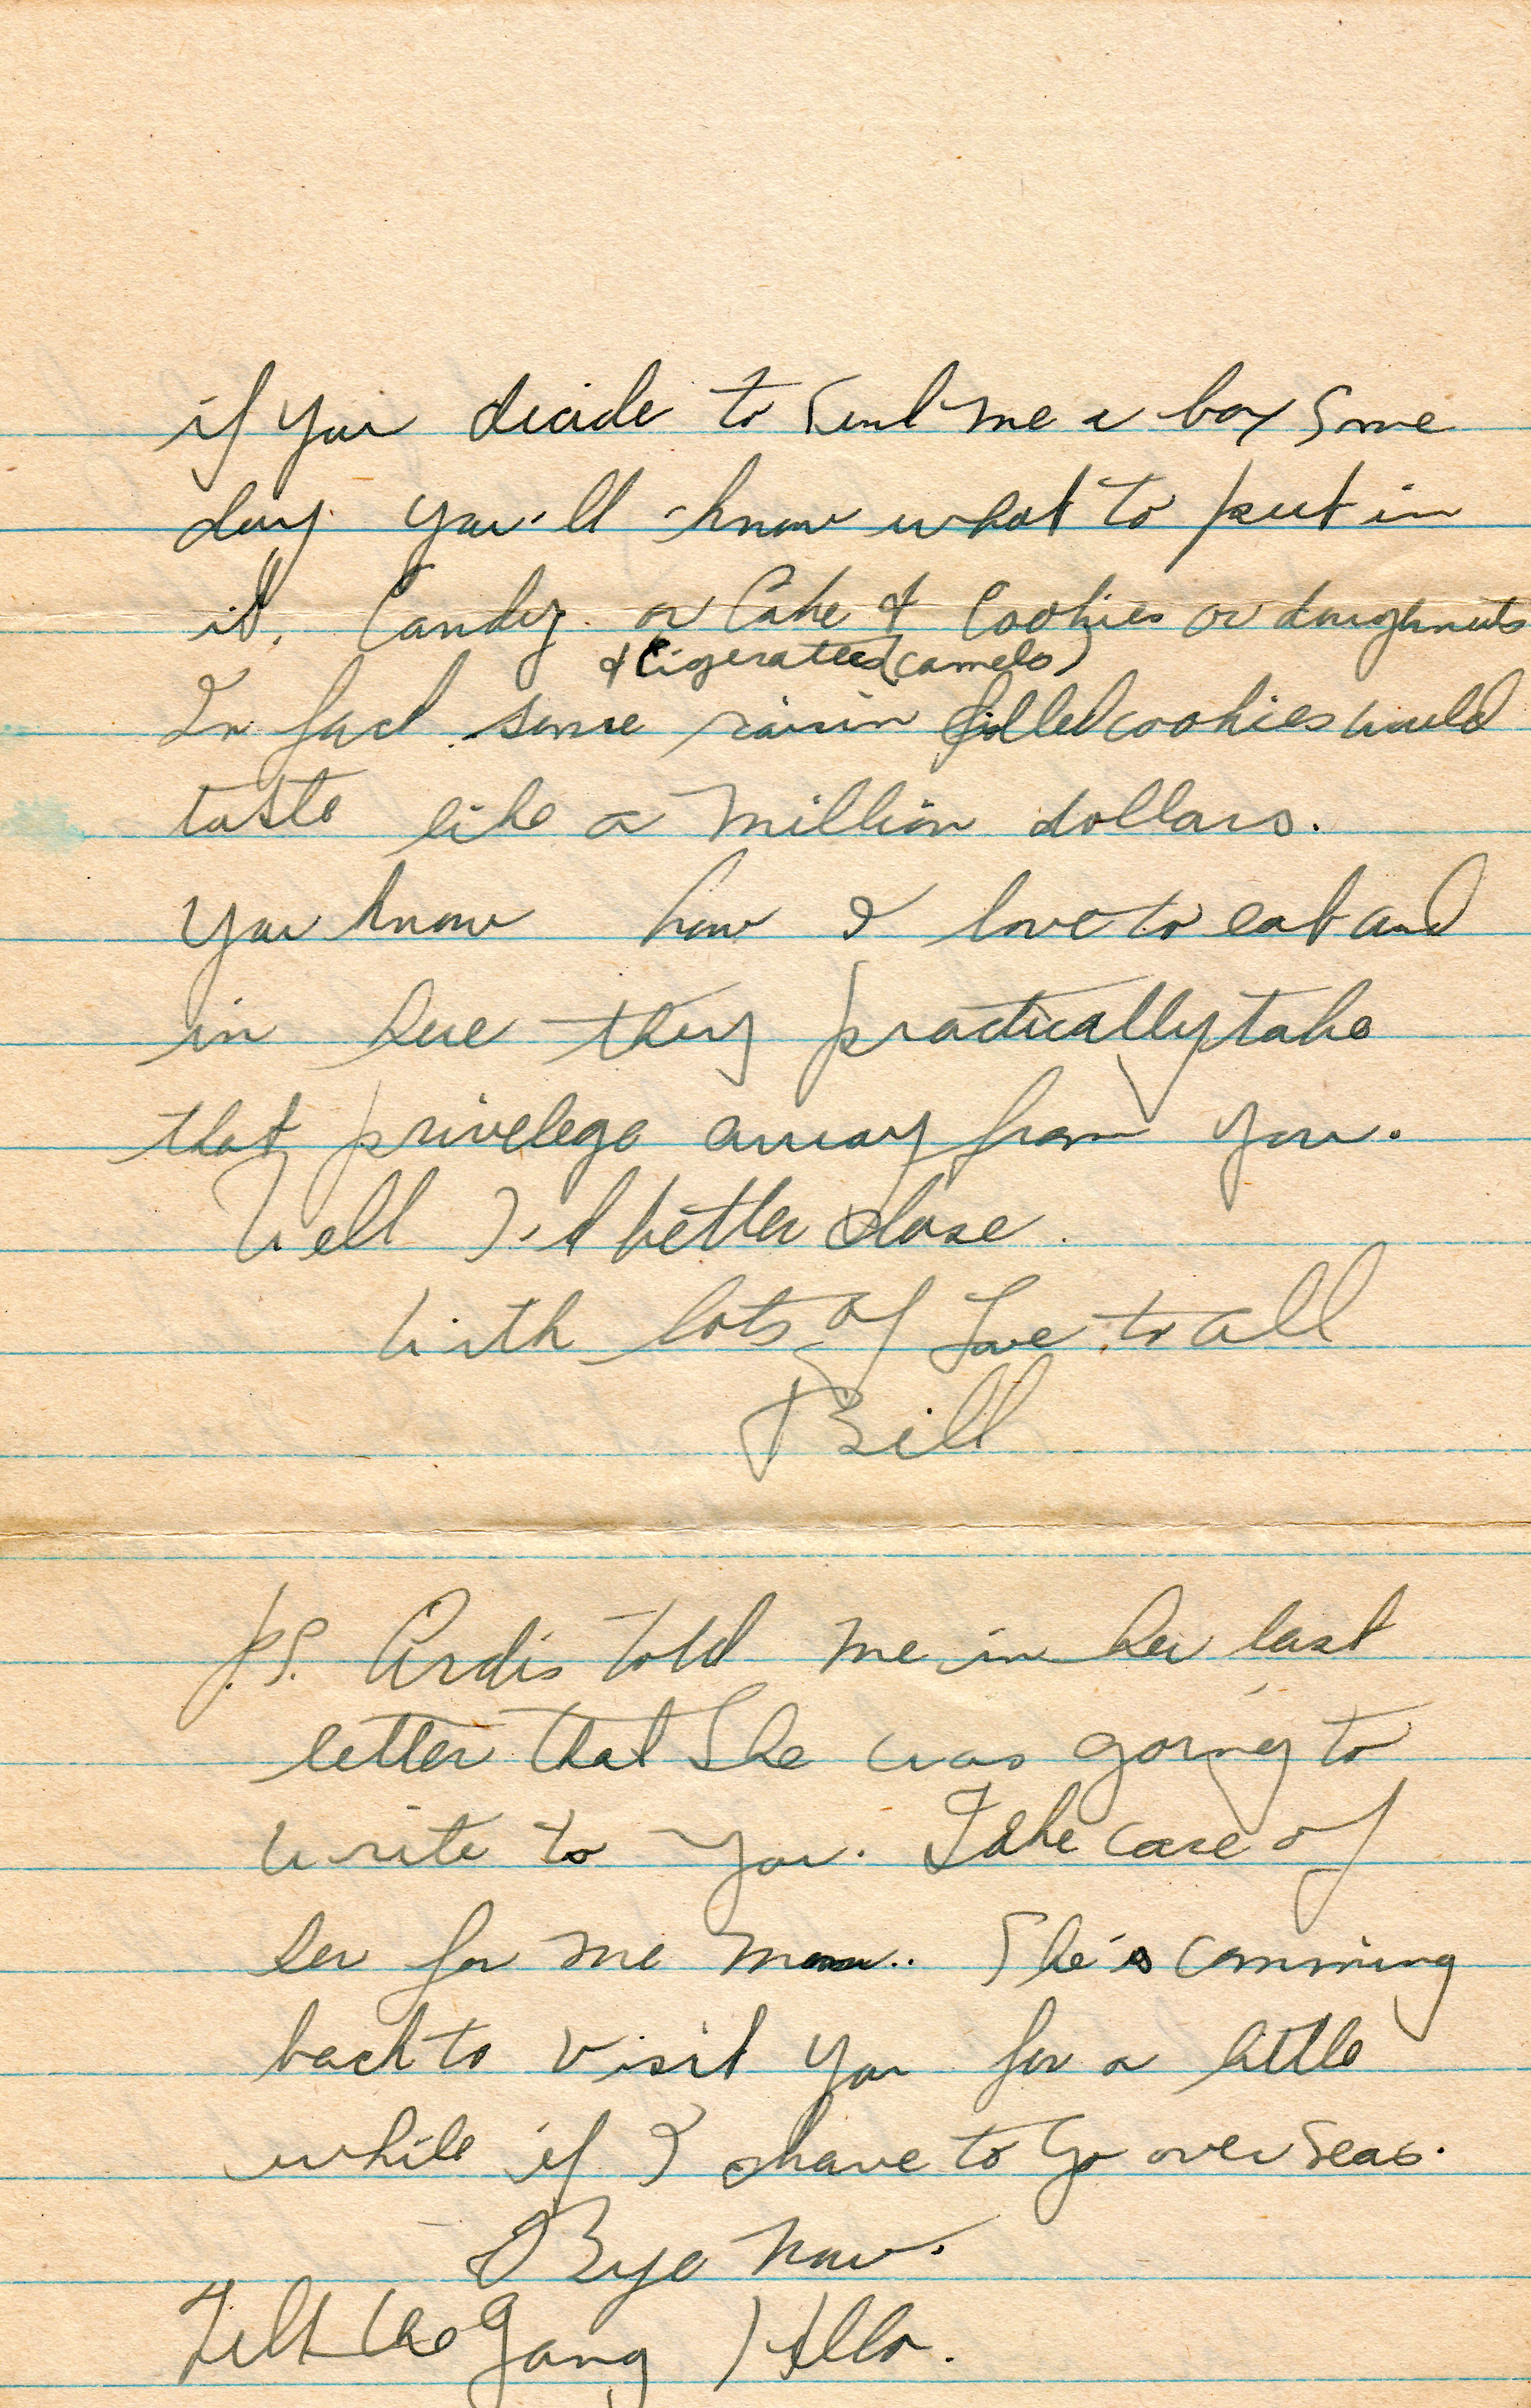 if you decide to send me a box some
day you'll know what to put in
it. Candy or Cake & Cookies or doughnuts
& Cigerattes (camels)
In fact some raisin filled cookies would
taste like a million dollars.
You know how I love to eat and
in here they practically take
that privelege away from you.
Well I'd better close.
With lots of Love to all
Bill
P.S. Ardis told me in her last
letter that She was going to
write to you. Take care of
her for me Mom.. She's comming
back to visit you for a little
while if I have to go over seas.
Bye now.
Tell the Gang Hello.